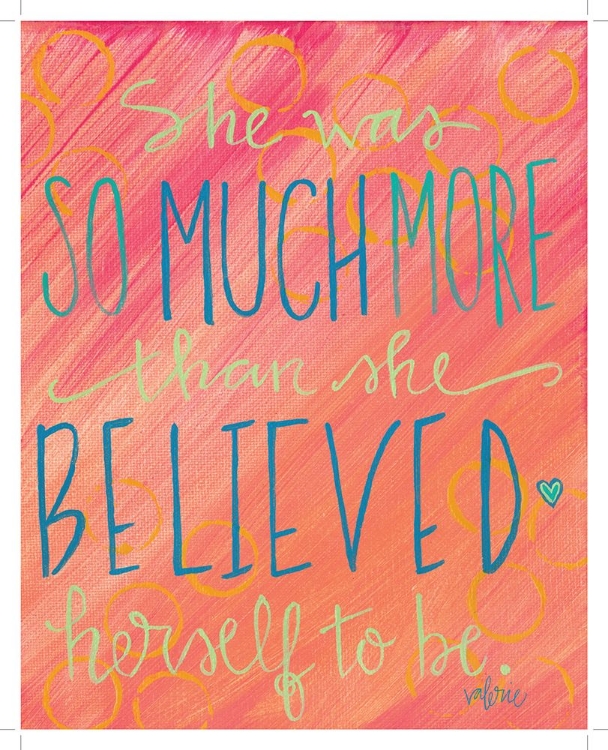 She was
SO MUCH MORE
than she
BELIEVED
herself to be.
valerie